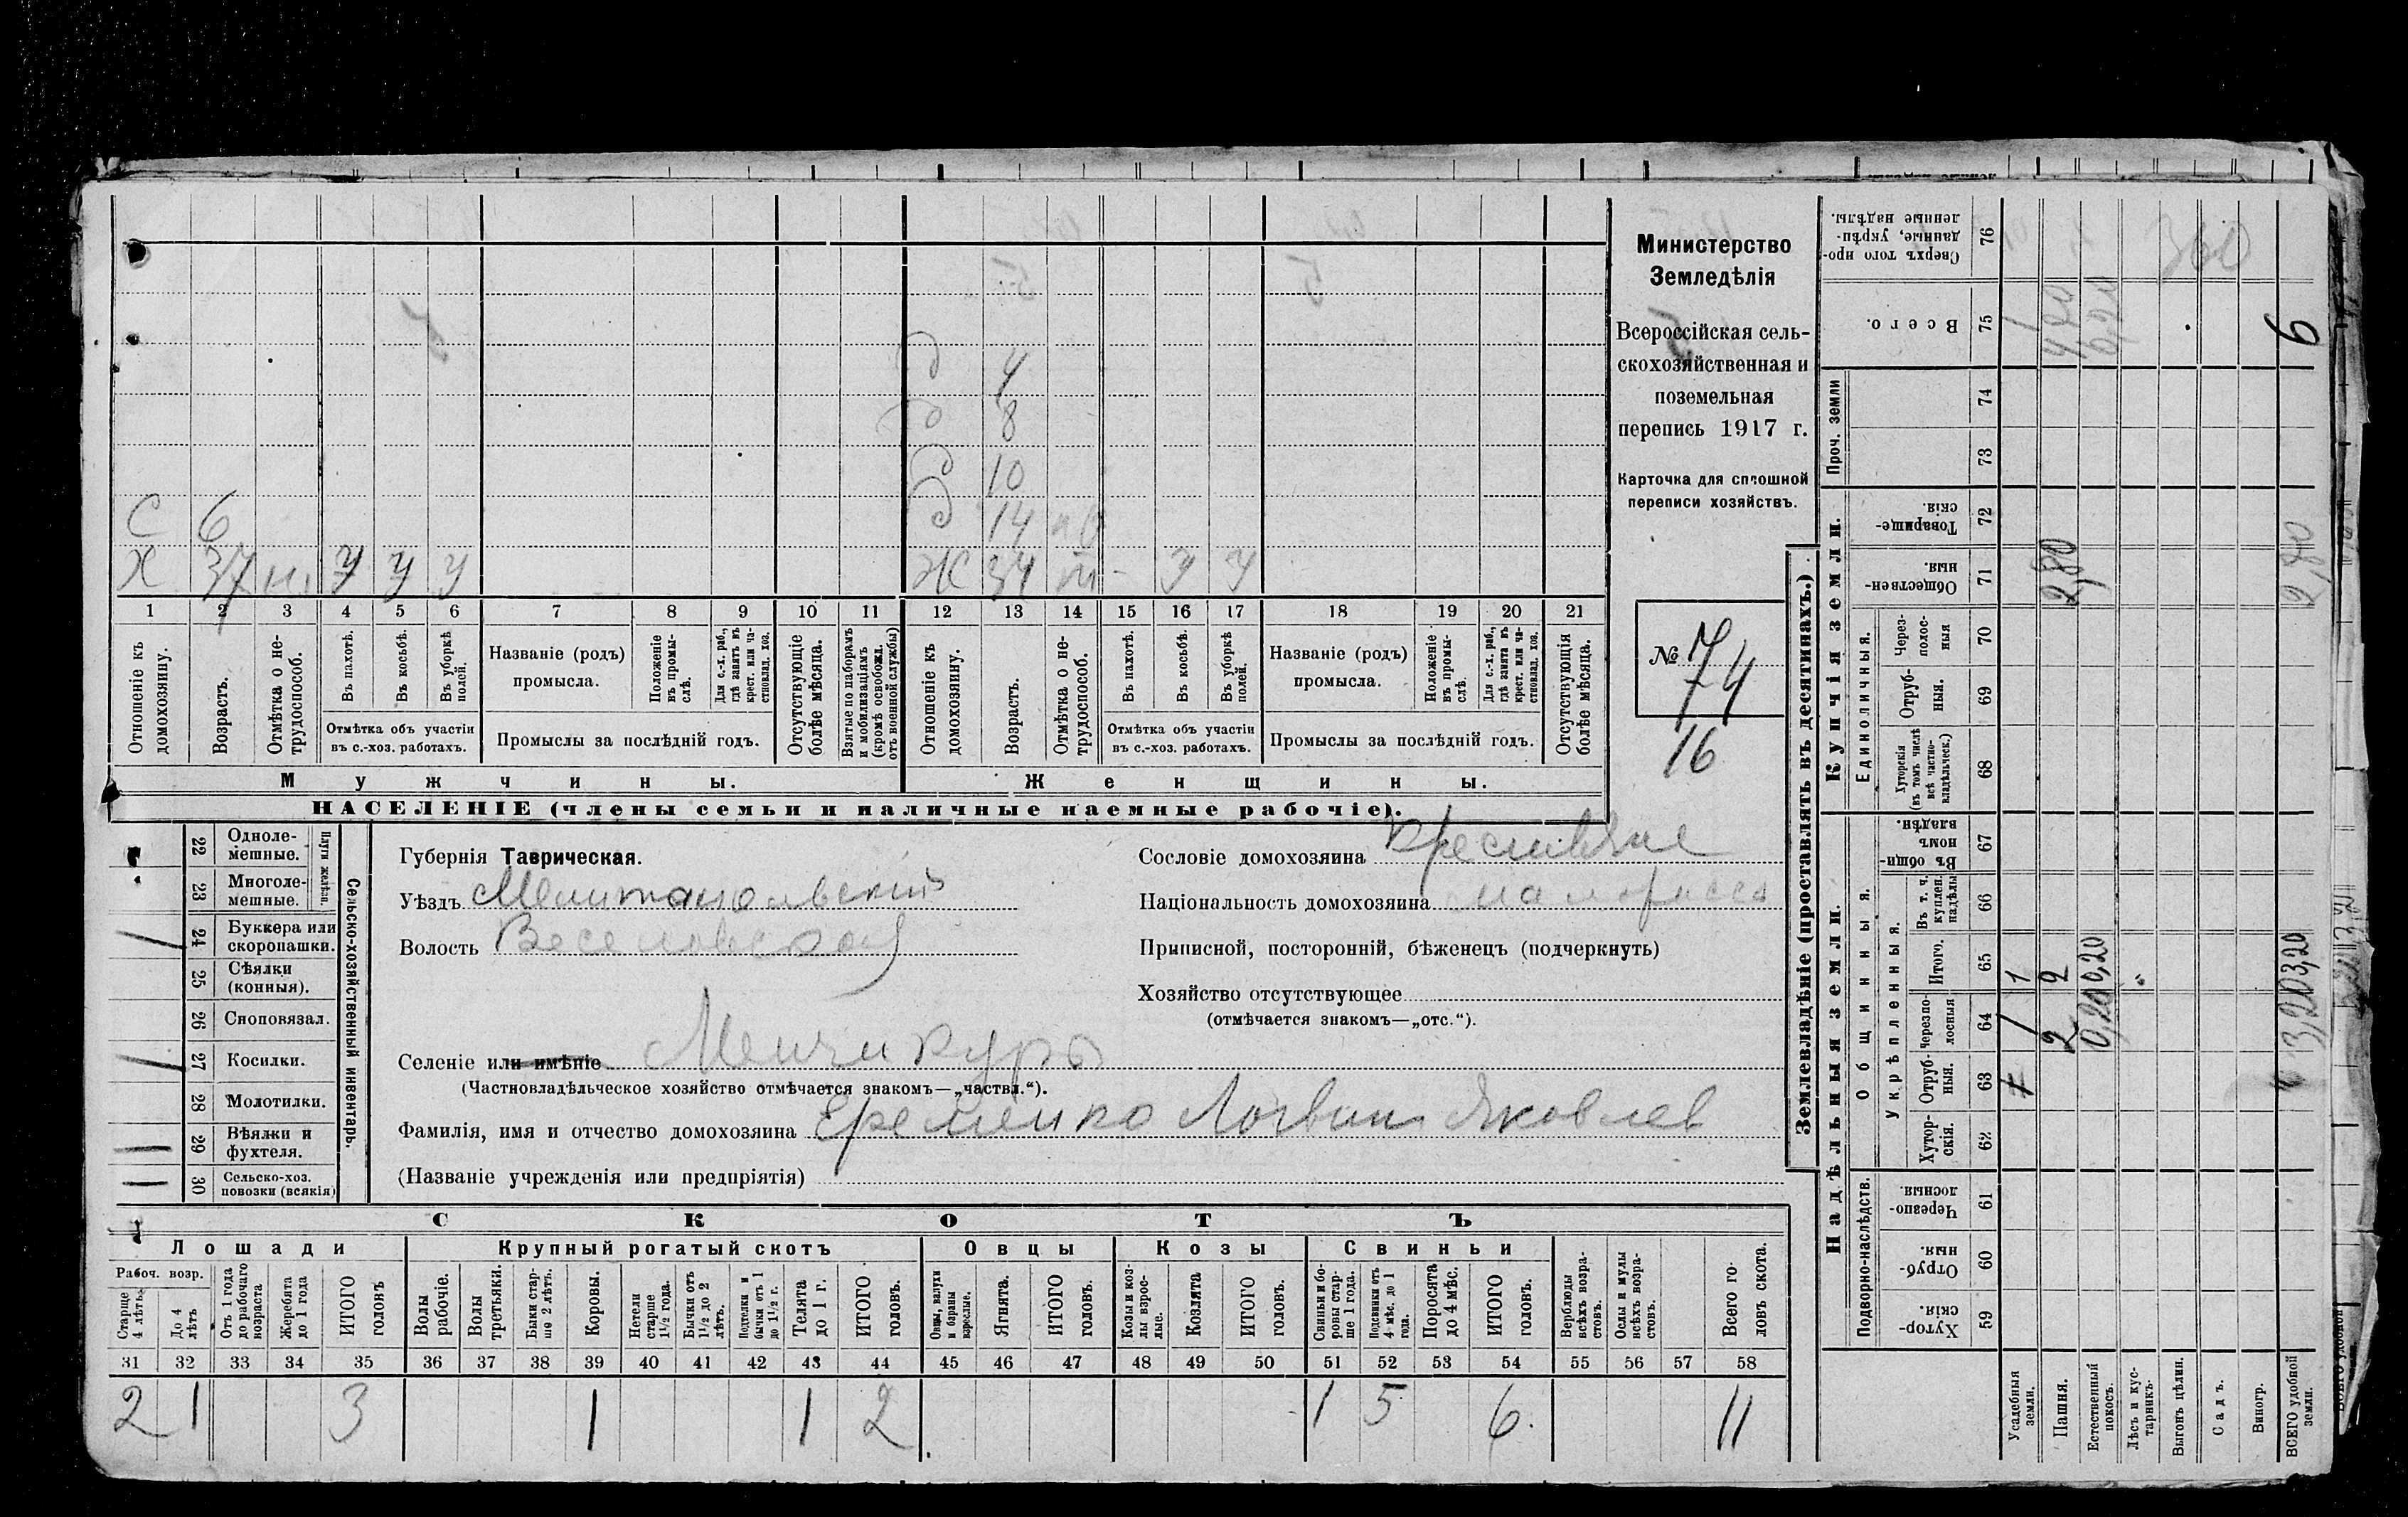 Министерство
Земледѣлія
Всероссійская сель-
скохозяйственная и
поземельная
перепись 1917 г.
Карточка для сплошной
переписи хозяйствъ.
№ 74
16
4
8
10
С 6
14
Х 37 н. У У У
Ж 34 - У У
1 2 3 4 5 6 7 8 9 10 11 12 13 14 15 16 17 18 19 20 21
Отношеніе къ домохозяину.
Возрастъ.
Отмѣтка о не-трудоспособ.
Въ пахотѣ.
Въ косьбѣ.
Въ уборкѣ полей.
Отмѣтка объ участіи
въ с.-хоз. работахъ.
Названіе (родъ)
промысла.
Положеніе въ промы-слѣ.
Для с.-х. раб., гдѣ занятъ въ крест. или ча-стновлад. хоз.
Промыслы за послѣдній годъ.
Отсутствующіе болѣе мѣсяца.
Взятые по наборамъ и мобилизаціямъ (кромѣ освобожд. отъ военной службы)
Отношеніе къ домохозяину.
Возрастъ.
Отмѣтка о не-трудоспособ.
Въ пахотѣ.
Въ косьбѣ.
Въ уборкѣ полей.
Отмѣтка объ участіи
въ с.-хоз. работахъ.
Названіе (родъ)
промысла.
Положеніе въ промы-слѣ.
Для с.-х. раб., гдѣ занята въ крест. или ча-стновлад. хоз.
Промыслы за послѣдній годъ.
Отсутствующія болѣе мѣсяца.
Мужчины.
Женщины.
НАСЕЛЕНІЕ (члены семьи и наличные наемные рабочіе).
Сельско-хозяйственный инвентарь.
Плуги желѣзн.
22 Одноле-мешные.
23 Многоле-мешные.
24 Буккера или скоропашки. 1
25 Сѣялки (конныя).
26 Сноповязал.
27 Косилки. 1
28 Молотилки.
29 Вѣялки и фухтеля. 1
30 Сельско-хоз. повозки (всякія) 1
Губернія Таврическая.
Уѣздъ Мелитопольскій
Волость Веселовская
Селеніе или имѣніе Менчикуры
(Частновладѣльческое хозяйство отмѣчается знакомъ—„частвл.“).
Фамилія, имя и отчество домохозяина Еременко Логвин Яковлев
(Названіе учрежденія или предпріятія)
Сословіе домохозяина
Національность домохозяина малоросса
Приписной, посторонній, бѣженецъ (подчеркнуть)
Хозяйство отсутствующее
(отмѣчается знакомъ—„отс.“).
СКОТЪ
Лошади
Крупный рогатый скотъ
Овцы
Козы
Свиньи
Рабоч. возр.
Старше 4 лѣтъ.
До 4 лѣтъ
Отъ 1 года до рабочаго возраста
Жеребята до 1 года
ИТОГО головъ
Волы рабочіе.
Волы третьяки.
Быки стар-ше 2 лѣтъ.
Коровы.
Нетели старше 1½ года.
Бычки отъ 1½ до 2 лѣтъ.
Подтелки и бычки отъ 1 до 1½ г.
Телята до 1 г.
ИТОГО головъ.
Овцы, валухи и бараны взрослые.
Ягнята.
ИТОГО головъ.
Козы и коз-лы взрос-лые.
Козлята
ИТОГО головъ.
Свиньи и бо-ровы стар-ше 1 года.
Подсвинки отъ 4 мѣс. до 1 года.
Поросята до 4 мѣс.
ИТОГО головъ.
Верблюды всѣхъ возра-стовъ.
Ослы и мулы всѣхъ возра-стовъ.
Всего го-ловъ скота.
31 32 33 34 35 36 37 38 39 40 41 42 43 44 45 46 47 48 49 50 51 52 53 54 55 56 57 58
2 1 3 1 1 2 1 5 6. 11
Землевладѣніе (проставлять въ десятинахъ.)
Надѣльныя земли.
Купчія земли.
Проч. земли
Подворно-наслѣдств.
Общинныя.
Укрѣпленныя.
Единоличныя.
Сверхъ того про-данные, укрѣп-ленные надѣлы. 76
Всего. 75
74
73
Товарище-скія. 72
Обществен-ныя. 71
Через-полос-ныя 70
Отруб-ныя. 69
Хуторскія (въ томъ числѣ всѣ частно-владѣльческ.) 68
Въ общи-номъ владѣн. 67
Въ т. ч. куплен. надѣлы 66
Итого. 65
Черезпо-лосныя 64
Отруб-ныя. 63
Хутор-скія. 62
Черезпо-лосныя. 61
Отруб-ныя. 60
Хутор-скія. 59
Усадебныя земли. 1 1
Пашня. 2 2 2,80
Естественный покосъ. 0,20 0,20
Лѣсъ и кус-тарникъ.
Выгонъ цѣлин.
Садъ.
Виногр.
ВСЕГО удобной земли. 3,20 3,20 2,80 6
360